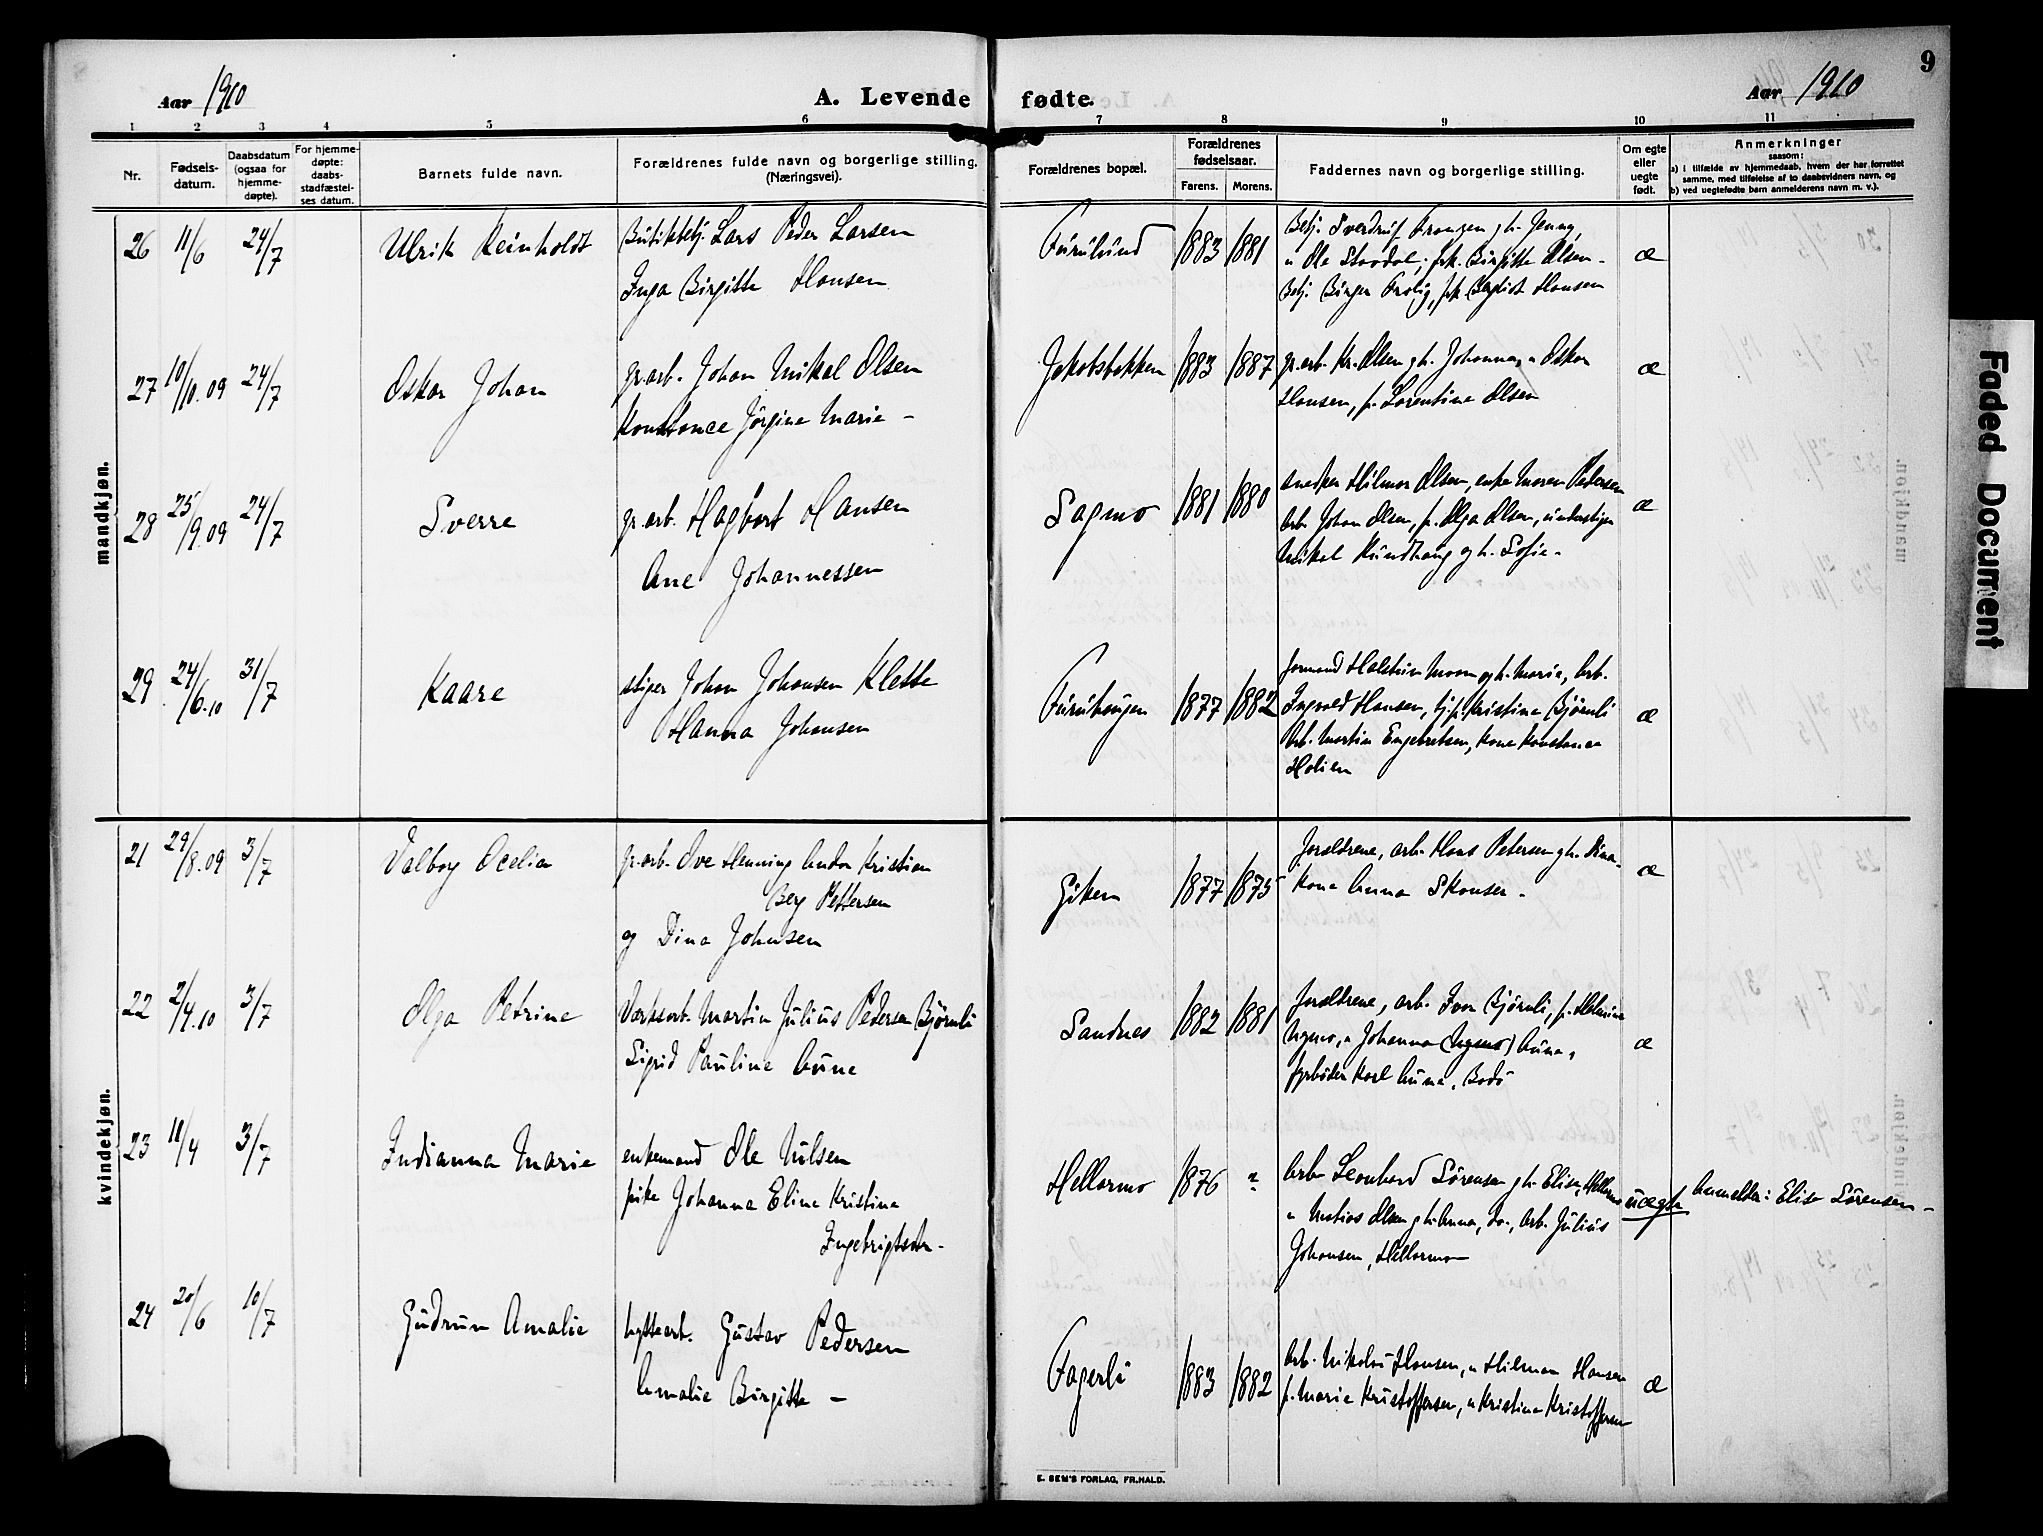 9
Aar 1910
A. Levende fødte.
Aar 1910
1 2 3 4 5 6 7 8 9 10 11
Nr.
Fødsels-
datum.
Daabsdatum
(ogsaa for
hjemme-
døpte).
For hjemme-
døpte:
daabs-
stadfæstel-
ses datum.
Barnets fulde navn.
Forældrenes fulde navn og borgerlige stilling.
(Næringsvei).
Forældrenes bopæl.
Forældrenes
fødselsaar.
Farens. Morens.
Faddernes navn og borgerlige stilling.
Om egte
eller
uegte
født.
Anmerkninger
saasom:
a) i tilfælde av hjemmedaab, hvem der har forrettet
samme, med tilføielse af to daabsvidners navn, og
b) ved uegtefødte barn anmelderens navn m. v.).
mandkjøn.
26 11/6 24/7 Ulrik Reinholdt
Butikbetj. Lars Peder Larsen
Inga Birgitte Hansen
Furulund 1883 1881
Betj. Sverdrup Frongen g h. Jenny,
u Ole Stordal, frk. Birgitte Olsen -
Betj. Birger Frolig, frk Hansen
æ
27 10/10.09 24/7 Oskar Johan
gr.arb. Johan Mikal Olsen
Konstance Jørgine Marie -
Jakobsbakken 1883 1887
gr.arb. Kr. Olsen g h. Johanna, u Oskar
Hansen, p. Lorentine Olsen
æ
28 25/9.09 24/7 Sverre
gr.arb. Hagbart Hansen
Ane Johannessen
Sagmo 1881 1880
snedker Hilmar Olsen, enke Maren Pedersen
Arb. Johan Olsen, p. Olga Olsen, understiger
Mikal Rundhaug og h. Sofie -
æ
29 24/6.10 31/7 Kaare
stiger Johan Johansen Klette
Hanna Johansen
Furuhaugen 1877 1882
formand Halstein Moen og h. Marie, Arb.
Ingvald Hansen, tj.p. Kristine Bjørnli
Arb. Martin Engebretsen, Kone Konstance
Holien
æ
kvindekjøn.
21 29/8.09 3/7 Valborg Ocelia
gr.arb. Ove Henning Andor Kristian
Berg Pettersen
og Dina Johnsen
Giken 1877 1875
forældrene, arb. Hans Petersen g h. Dina -
Kone Anna Skonser -
æ
22 2/4.10 3/7 Olga Petrine
Værksarb. Martin Julius Pedersen Bjørnli
Sigrid Pauline Aune
Sandnes 1882 1881
forældrene, arb. Ivar Bjørnli, p. Helmine
Nymo, u Johanna (Nymo) Aune,
fyrbøder Karl Aune, Bodø
æ
23 11/4 3/7 Indianna Marie
enkemand Ole Nilsen
pike Johanna Eline Kristine
Ingebrigtsdtr. -
Hellarmo 1876 ?
Arb Leonhard Sørensen g h. Elise, Hellarmo
u Matias Olsen g h. Anna, do., Arb. Julius
Johansen, Hellarmo
uegte
Anmelder: Elise Sørensen -
24 20/6 10/7 Gudrun Amalie
hyttearb. Gustav Pedersen
Amalie Birgitte -
Fagerli 1883 1882
Arb. Nikolai Hansen, u Hilman Hansen
p. Marie Kristoffersen, u Kristine Kristoffersen
æ
E. SEM'S FORLAG, FR.HALD.
Faded Document